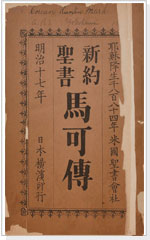 耶穌降生千八百八十四年 米國聖書會社
新約
聖書
馬可傳
明治十七年 日本橫濱印行